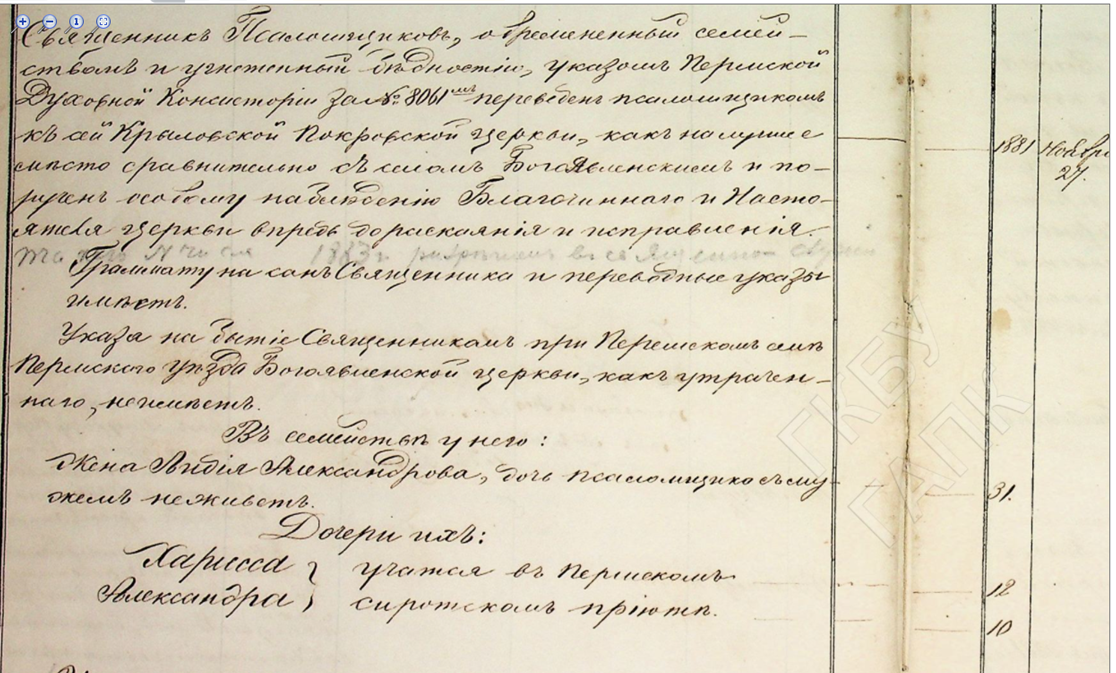 Священникъ Псаломщиковъ, обремененный семей-
ствомъ и угнетенный бѣдностію, указомъ Пермской
Духовной Консисторіи за № 8061мъ переведенъ псаломщикомъ
къ сей Крыловской Покровской церкви, какъ на лучшее
мѣсто сравнительно съ селомъ Богоявленскимъ и по-
рученъ особому наблюденію Благочиннаго и Насто-
ятеля церкви впредь до раскаянія и исправленія.
числа 1883 г.
Грамматуна санъ Священника и переводные указы
имѣетъ.
Указа на бытіе Священникомъ при Перемскомъ селѣ
Пермскаго уѣзда Богоявленской церкви, какъ утрачен-
наго, неимѣетъ.
Въ семействѣ у него:
Жена Александрова, дочь псаломщика съ му-
жемъ неживетъ.
Дочери ихъ:
Харисса } учатся въ Пермскомъ
Александра } сиротскомъ пріютѣ.
1881 Ноября
27.
31.
12
10
ГКБУ
ГАПК